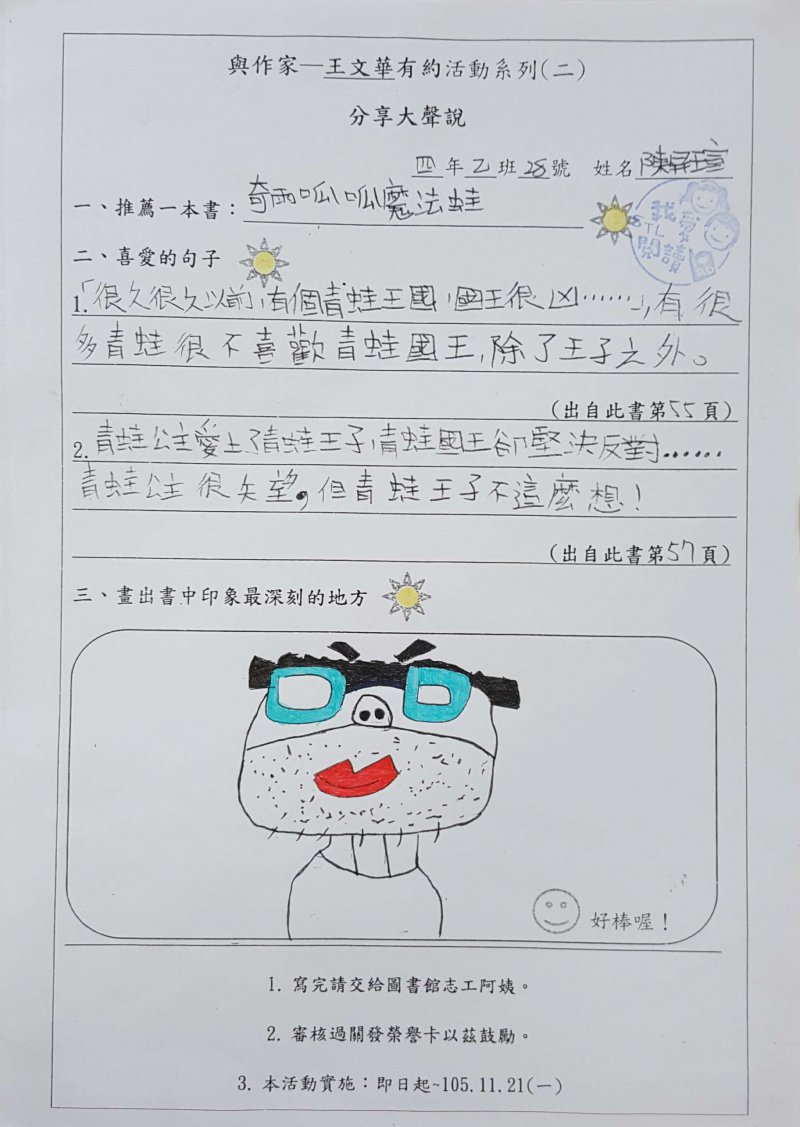 與作家—王文華有約活動系列(二)
分享大聲說
四年乙班28號 姓名陳屏瑄
一、推薦一本書：奇雨呱呱魔法蛙
我愛
STL
閱讀
二、喜愛的句子
1.「很久很久以前,有個青蛙王國,國王很凶……」,有很
多青蛙很不喜歡青蛙國王,除了王子之外。
(出自此書第55頁)
2.青蛙公主愛上了青蛙王子,青蛙國王卻堅決反對……
青蛙公主很失望,但青蛙王子不這麼想!
(出自此書第57頁)
三、畫出書中印象最深刻的地方
好棒喔!
1. 寫完請交給圖書館志工阿姨。
2. 審核過關發榮譽卡以茲鼓勵。
3. 本活動實施：即日起~105.11.21(一)